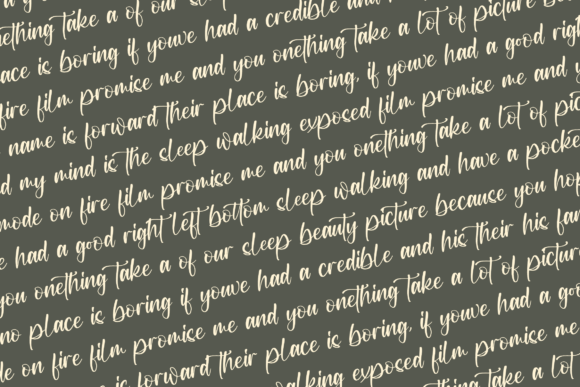 onething take a of our
ace is boring if youve had a credible and
fire film promise me and you onething take a lot of picture
name is forward their place is boring, if youve had a good right
d my mind is the sleep walking exposed film promise me and
mode on fire film promise me and you onething take a lot of
had a good right left bottom sleep walking and have a pocke
you onething take a of our sleep beauty picture because you hop
no place is boring if youve had a credible and his their his fan
de on fire film promise me and you onething take a lot of picture
is forward their place is boring, if youve had a good
walking exposed film promise me
take a lot of